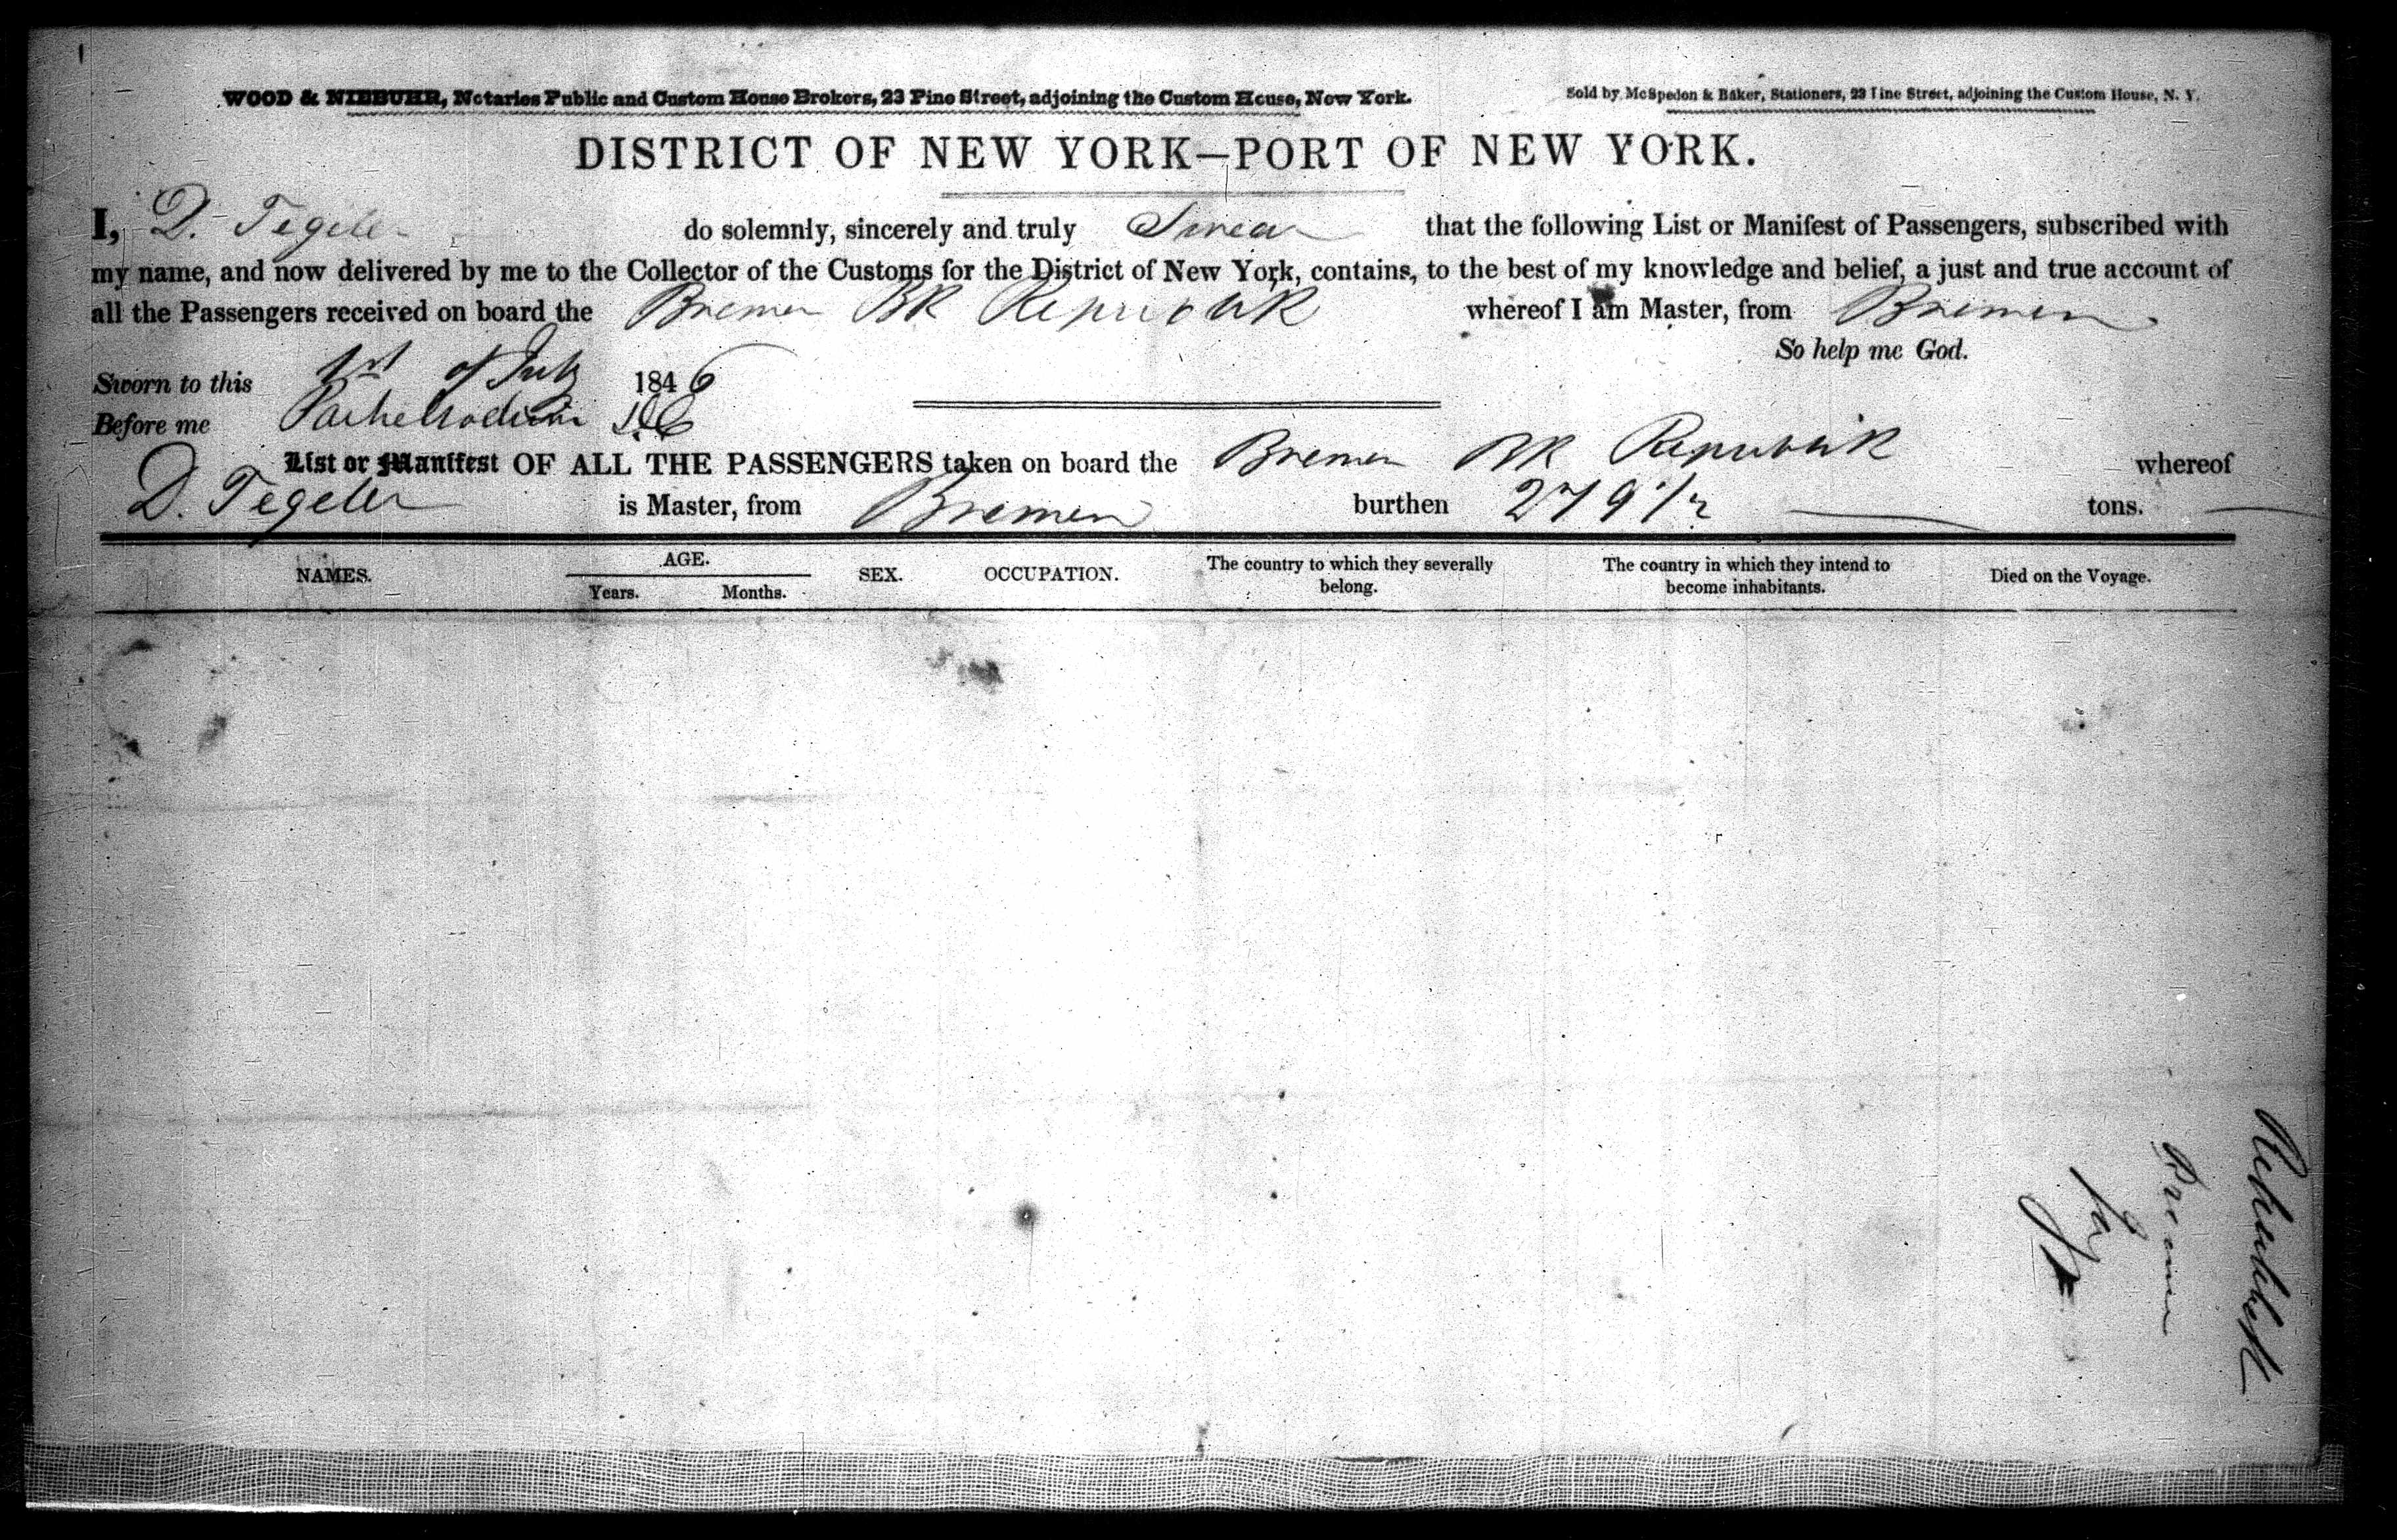 WOOD & NIEBUHR, Notaries Public and Custom House Brokers, 23 Pine Street, adjoining the Custom House, New York.
Sold by McSpedon & Baker, Stationers, 23 Pine Street, adjoining the Custom House, N. Y.
DISTRICT OF NEW YORK—PORT OF NEW YORK.
I, D. Tegeler do solemnly, sincerely and truly Swear that the following List or Manifest of Passengers, subscribed with
my name, and now delivered by me to the Collector of the Customs for the District of New York, contains, to the best of my knowledge and belief, a just and true account of
all the Passengers received on board the Bremen BK Republik whereof I am Master, from Bremen
So help me God.
Sworn to this 1st of July 1846
Before me
List or Manifest OF ALL THE PASSENGERS taken on board the Bremen BK Republik whereof
D. Tegeler is Master, from Bremen burthen 279 1/2 tons.
NAMES. AGE. SEX. OCCUPATION. The country to which they severally belong. The country in which they intend to become inhabitants. Died on the Voyage.
Years. Months.
Republik
Bremen